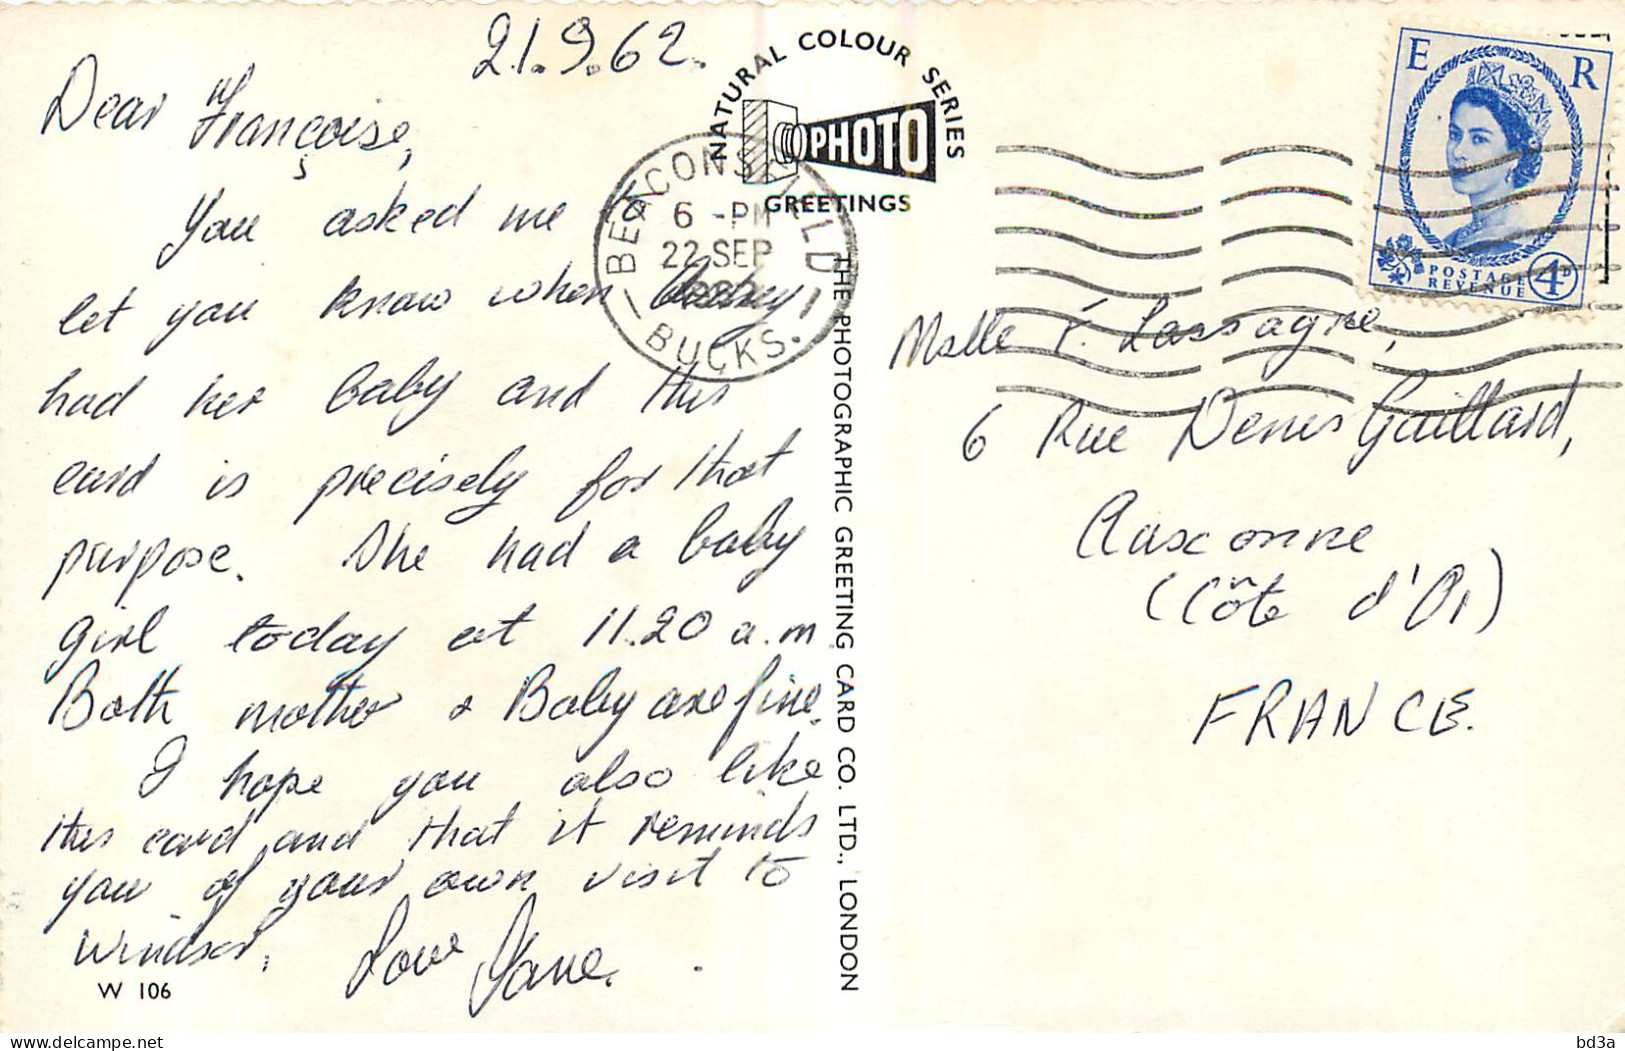 21.9.62.
Dear Françoise,
You asked me to
let you know when
had her baby and this
card is precisely for that
purpose. She had a baby
girl today at 11.20 a.m
Both mother & Baby are fine.
I hope you also like
this card and that it reminds
you of your own visit to
Windsor.
Love
W 106
NATURAL COLOUR SERIES
PHOTO
GREETINGS
THE PHOTOGRAPHIC GREETING CARD CO. LTD., LONDON
BEACONSFIELD
6 - PM
22 SEP
1962
BUCKS.
E R
POSTAGE
REVENUE
4D
Melle F. Lassagne,
6 Rue Denis Gaillard,
(Côte d'Or)
FRANCE.
bd3a